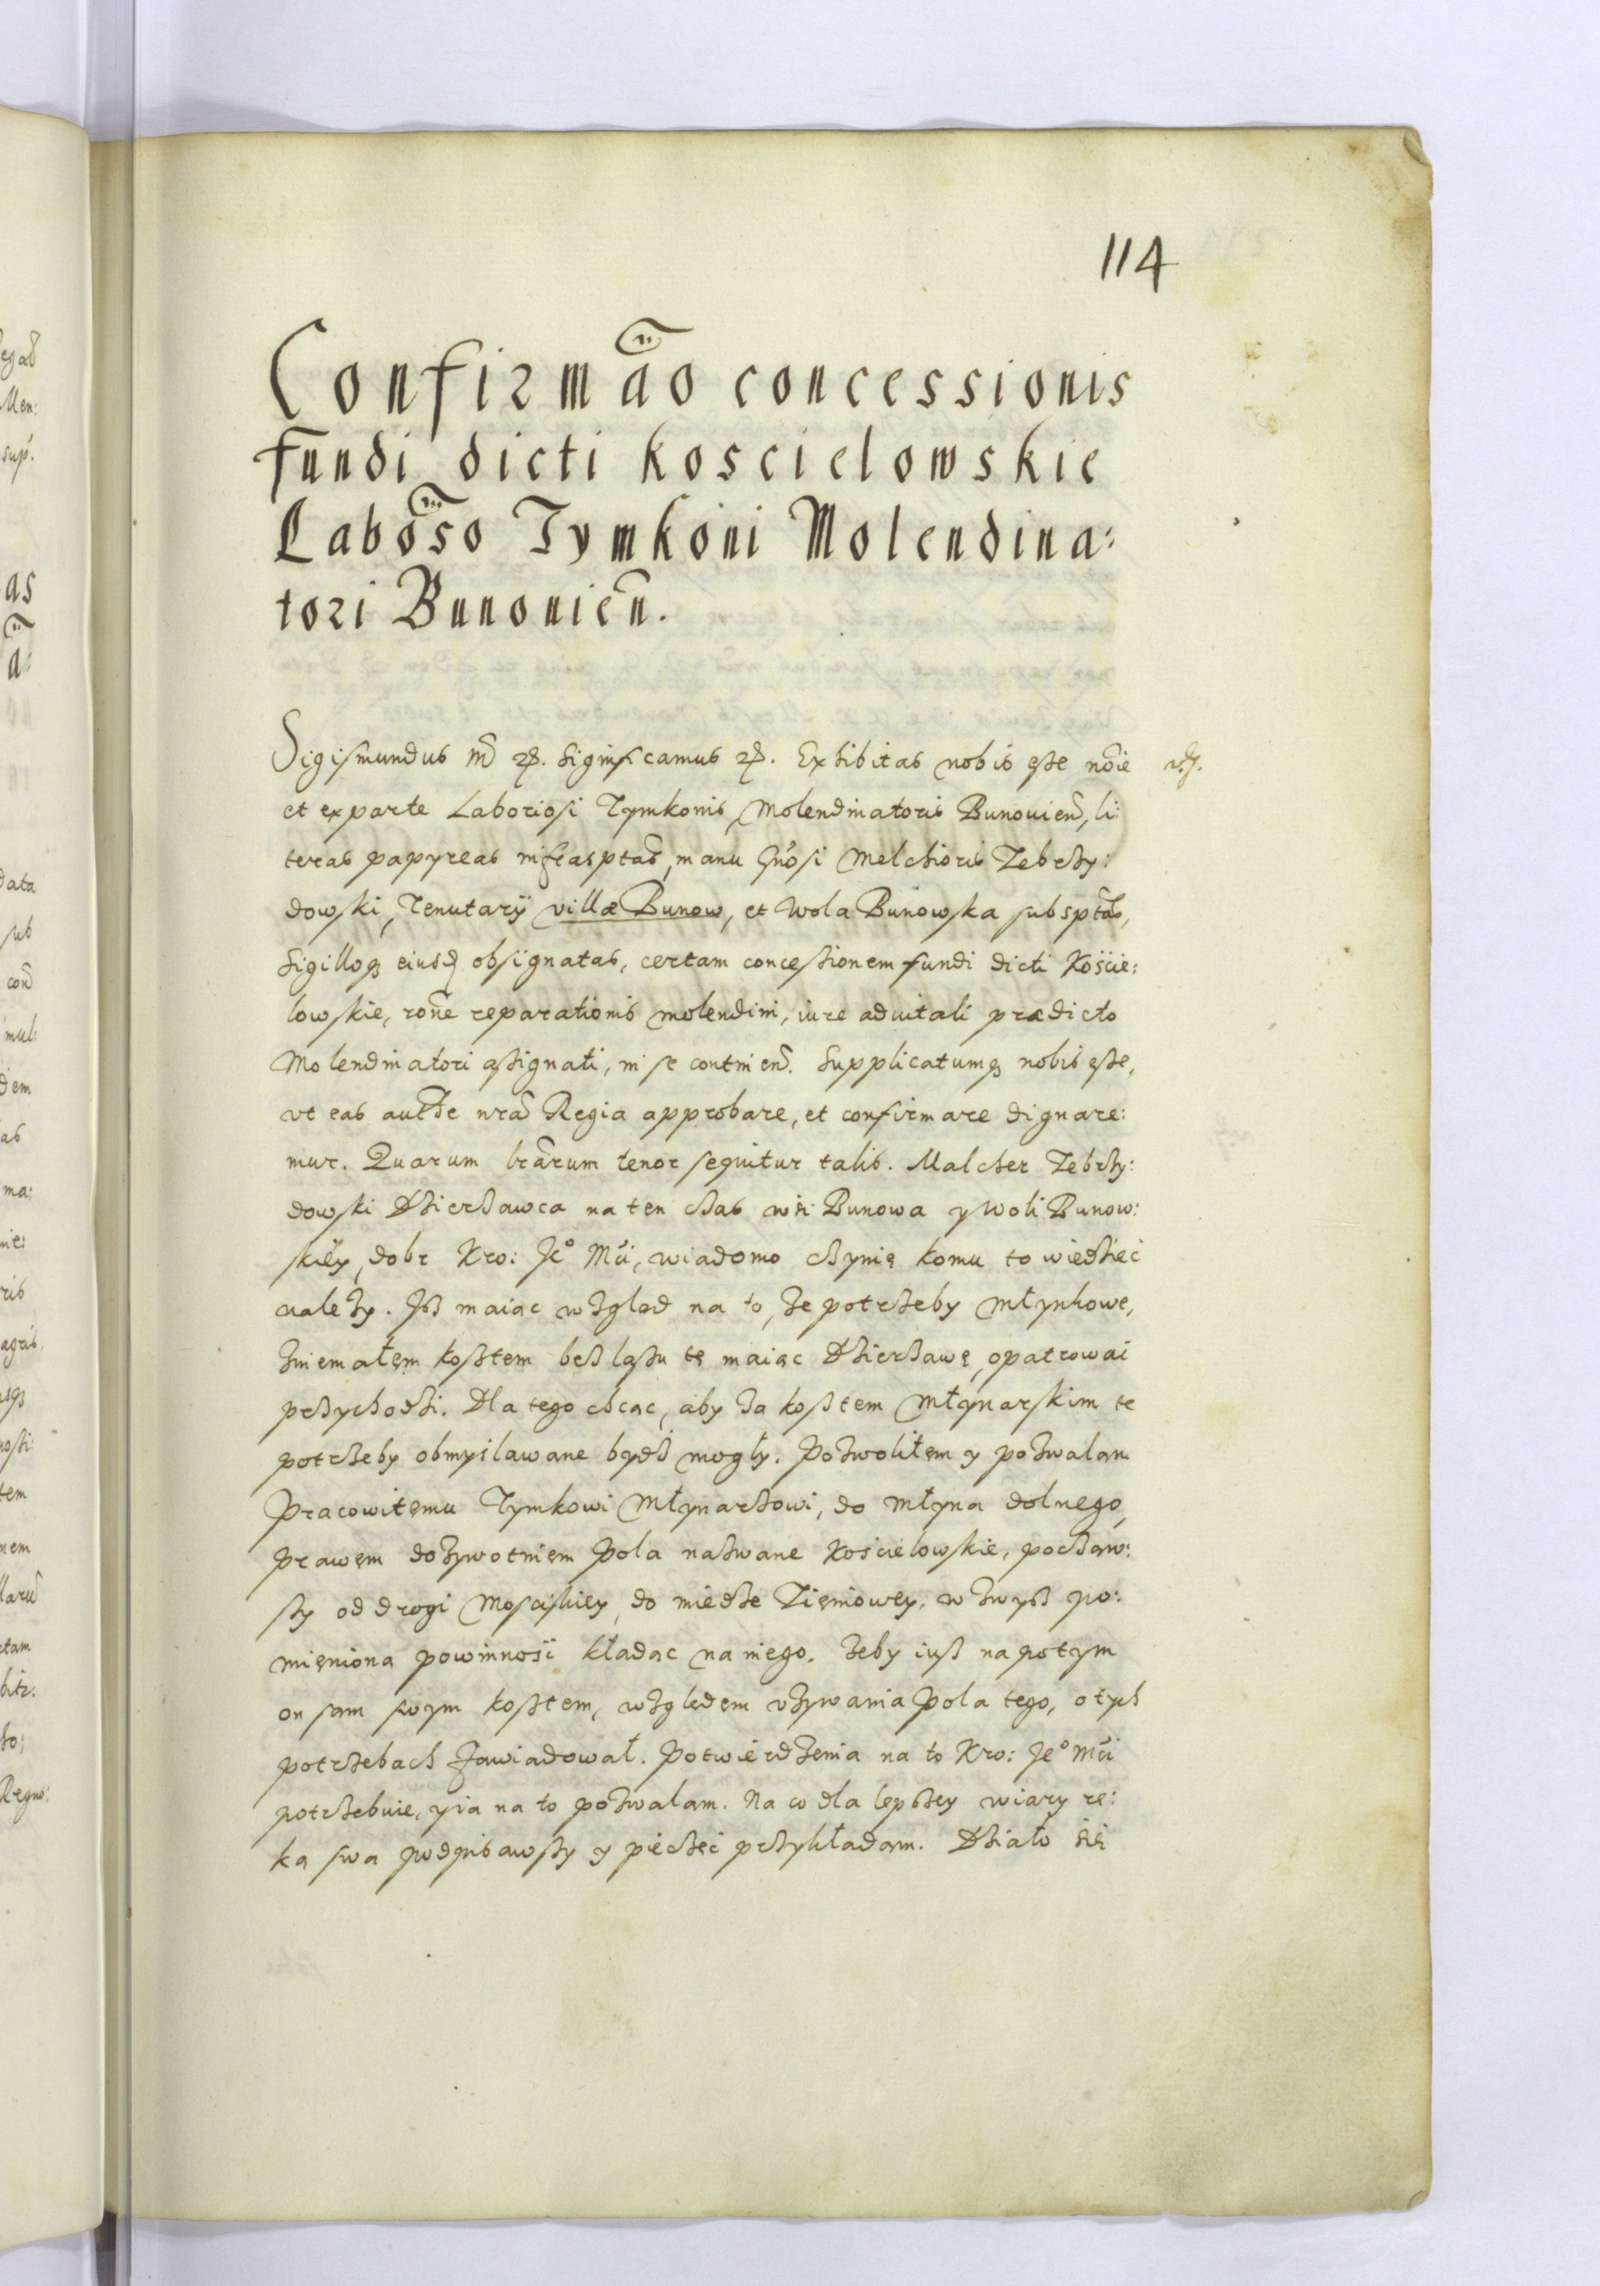 114
Confirmão concessionis
fundi dicti koscielowskie
Labõso Tymkoni Molendina:
tori Bunovień.
Sigismundus etc. Significamus etc. Exhibitas nobis esse noĩe
et ex parte Laboriosi Tymkonis Molendinatoris Bunovień, li:
teras papyreas infrascptas, manu Gnosi Melchioris Zebrzy:
dowski, Tenutarÿ villæ Bunow, et Wola Bunowska subscptas,
Sigilloq eiusd obsignatas, certam concessionem fundi dicti Koście:
lowskie, rõne reparationis molendini, iure aduitali prædicto
Molendinatori assignati, in se contineñ. Supplicatumq nobis esse,
vt eas autĥte nrã Regia approbare, et confirmare dignare:
mur. Quarum lrarum tenor sequitur talis. Malcher Zebrzy:
dowski Dzierzawca na ten czas wsi Bunowa y Woli Bunow:
skiey, dobr Kro: Jeº Mći, wiadomo czynię komu to wiedzieć
należy. Jż maiąc wzgląd na to, że potrzeby młynkowe,
zniemałem kosztem bez lasu tę maiąc Dzierzawę, opatrować
przychodzi. Dla tego chcąc, aby za kosztem Młynarskim te
potrzeby obmyślawane bydź mogły. Pozwoliłem y pozwalam
Pracowitemu Tymkowi Młynarzowi, do młyna dolnego,
prawem dożywotniem Pola nazwane Kościelowskie, począw:
szy od drogi Mosciskiey, do miedze Zięniowey. wzwyß po:
mięniona powinność kładąc na niego. Zeby iuß napotym
on sam swym kosztem, względem vżywania Pola tego, o tych
potrzebach zawiadował. Potwierdzenia na to Kro: Jeº Mći
potrzebuie, y ia na to pozwalam. Na co dla lepszey wiary rę:
ka swa podpisawszy y pieczęć przykładam. Działo się